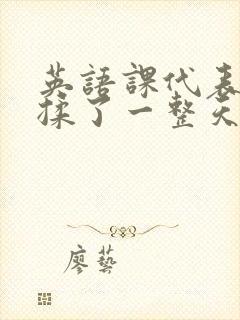 英語課代表
揉了一整天
廖藝